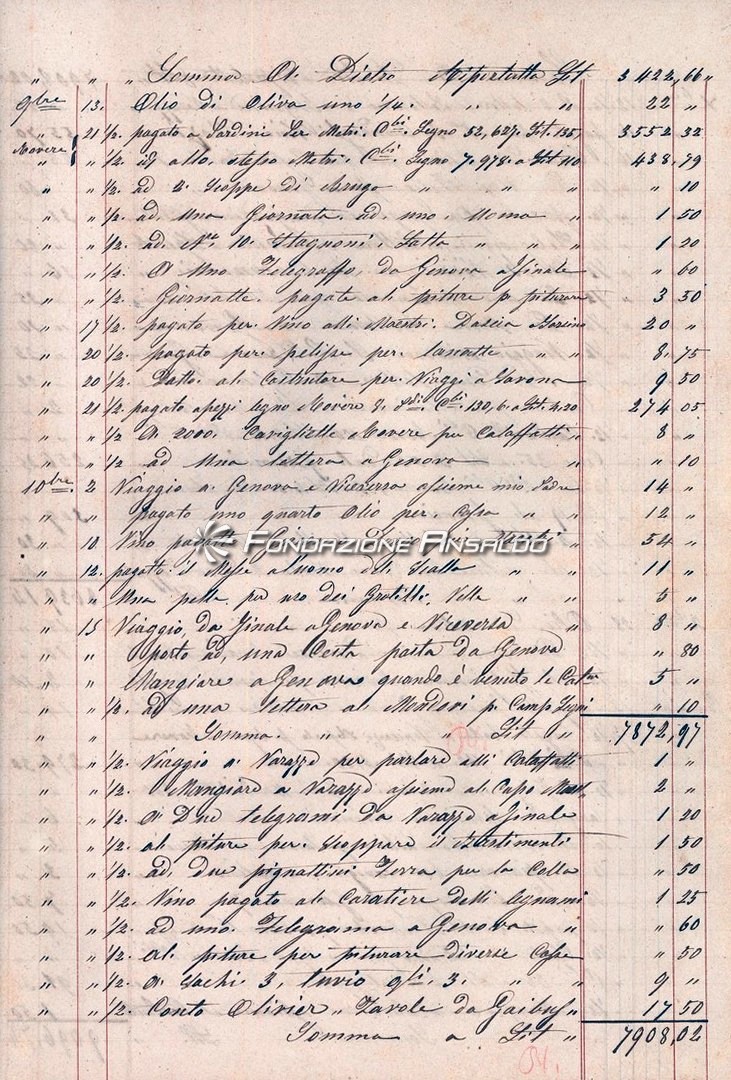 " " " Somma A. Dietro Riportatta Lit 3422,66 "
9bre 13. Olio di Oliva uno 1/4. " " 22 "
" 21 1/2. pagato a Sardini per Metri. Cbi. Legno 52,627. Lit. 135, 3552 32
Rovere " " 1/2 id allo. stesso Metri. Cbi. Legno 7.978. a Lit 110 438, 79
" " 1/2 ad 2. Scoppe di " " " 10
" " 1/2. ad. Una Giornata. ad. uno. Uomo 1 50
" " 1/2. ad. N.o 10. Stagnoni. Latta " " " 1 20
" " 1/2. A Uno Telegraffo, da Genova a Finale " 60
" " 1/2. Giornatte. pagate al. piture p piturare 3 50
" 17 1/2. pagato per. Vino alli Maestri. Dascia 20 "
" 20 1/2. pagato per. per. " " 8. 75
" 20 1/2. Datto. al. Costrutore per. Viaggi a Savona 9 50
" 21 1/2. pagato apezzi legno Rovere Cbi. 130,6. a Lit. 2.20 274 05
" " 1/2 A 2000. Cavigliette Rovere per Calaffatti " 8 "
" " 1/2 ad Una lettera a Genova " " 10
10bre. 2 Viaggio a. Genova e Viceversa assieme mio Padre 14 "
" " pagato uno quarto Olio per. Casa " 12 "
" 10 Vino " 54 "
" 12. pagatto il Mese a l'uomo del. Stalla " " 11 "
" " Una pelle, per uso dei Velle " " 5 "
" 15 Viaggio, da Finale a Genova e Viceversa " 8 "
" " porto ad, una Cesta pasta da Genova " 80
" " Mangiare a Genova quando è benuto le 5 "
" " 1/2. ad una lettera a. Mondovi p. Campo Legni " 10
" " Somma. " " Lit " 7872,97
" " 1/2. Viaggio a. Varazze per parlare alli Calaffatti 1 "
" " 1/2. Mangiare a Varazze assieme al Capo 2 "
" " 1/2. a Due telegrami da Varazze a Finale 1 20
" " 1/2. al piture per. scoppare il Bastimenti 1 50
" " 1/2. ad. due pignattini Terra per la Colla " 50
" " 1/2. Vino pagato al. Caratiere delli legnami 1 25
" " 1/2. ad uno. Telegrama a Genova " " 60
" " 1/2. al. piture per piturare diverse Casse " 50
" " 1/2. a. Sachi. 3, 3. " " 9 "
" " 1/2. Conto Olivier " Tavole da " 17 50
Somma a Lit " 7908,02
Fondazione Ansaldo